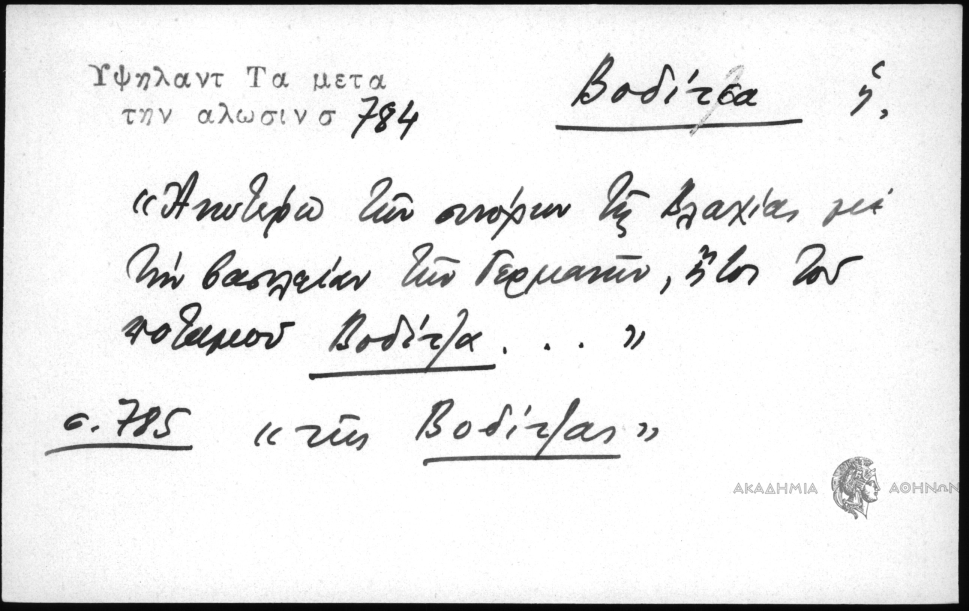 Υψηλαντ Τα μετα
την αλωσιν σ 784
Βοδίτσα ἡ,
«Ἀκοτέρω τῶν συνόρων τῆς Βλαχίας μὲ
τὴν βασιλείαν τῶν Γερμανῶν, ἤτοι τοῦ
ποταμοῦ Βοδίτζα . . . »
σ. 785 «τῆς Βοδίτζας»
ΑΚΑΔΗΜΙΑ ΑΘΗΝΩΝ